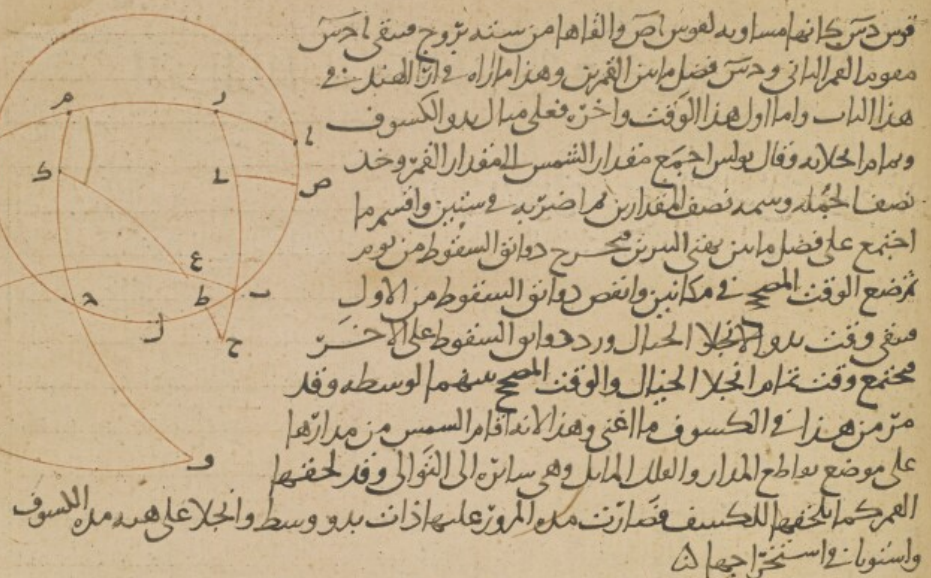 قوس دس كانها مساويه لقوس اص والقاها من سته بروج فيبقى ادس
مقوما للقمر الثانى و دس فضل ما بين القمرين وهذا ما اراه فى اراء الهند فى
هذا الباب واما اول هذا الوقت واخره فعلى مثال بدو الكسوف
وتمام انجلايه وقال بولس اجمع مقدار الشمس الى مقدار القمر وخذ
نصف الجمله وسمه نصف المقدارين ثم اضربه فى ستين واقسم ما
اجتمع على فضل ما بين بهتى النيرين فيخرج دوانق السقوط من يوم
ثم ضع الوقت المصحح فى مكانين وانقص دوانق السقوط من الاول
فيبقى وقت بدو الانجلا الخيال وزد دوانق السقوط على الاخر
فيجتمع وقت تمام انجلا الخيال والوقت المصحح بينهما لوسطه وقد
مر من هذا فى الكسوف ما اغنى وهذا لانه اقام الشمس من مدارها
على موضع تقاطع المدار والفلك المايل وهى سايره الى التوالى وقد لحقها
القمر كما يلحقها للكسف فصارت مده المرور عليها ذات بدو ووسط وانجلا على هيه مده الكسوف
واستويا فى استخراجها
م
ر
ا
ك
ل
ص
ع
ب
ط
د
ل
ح
و